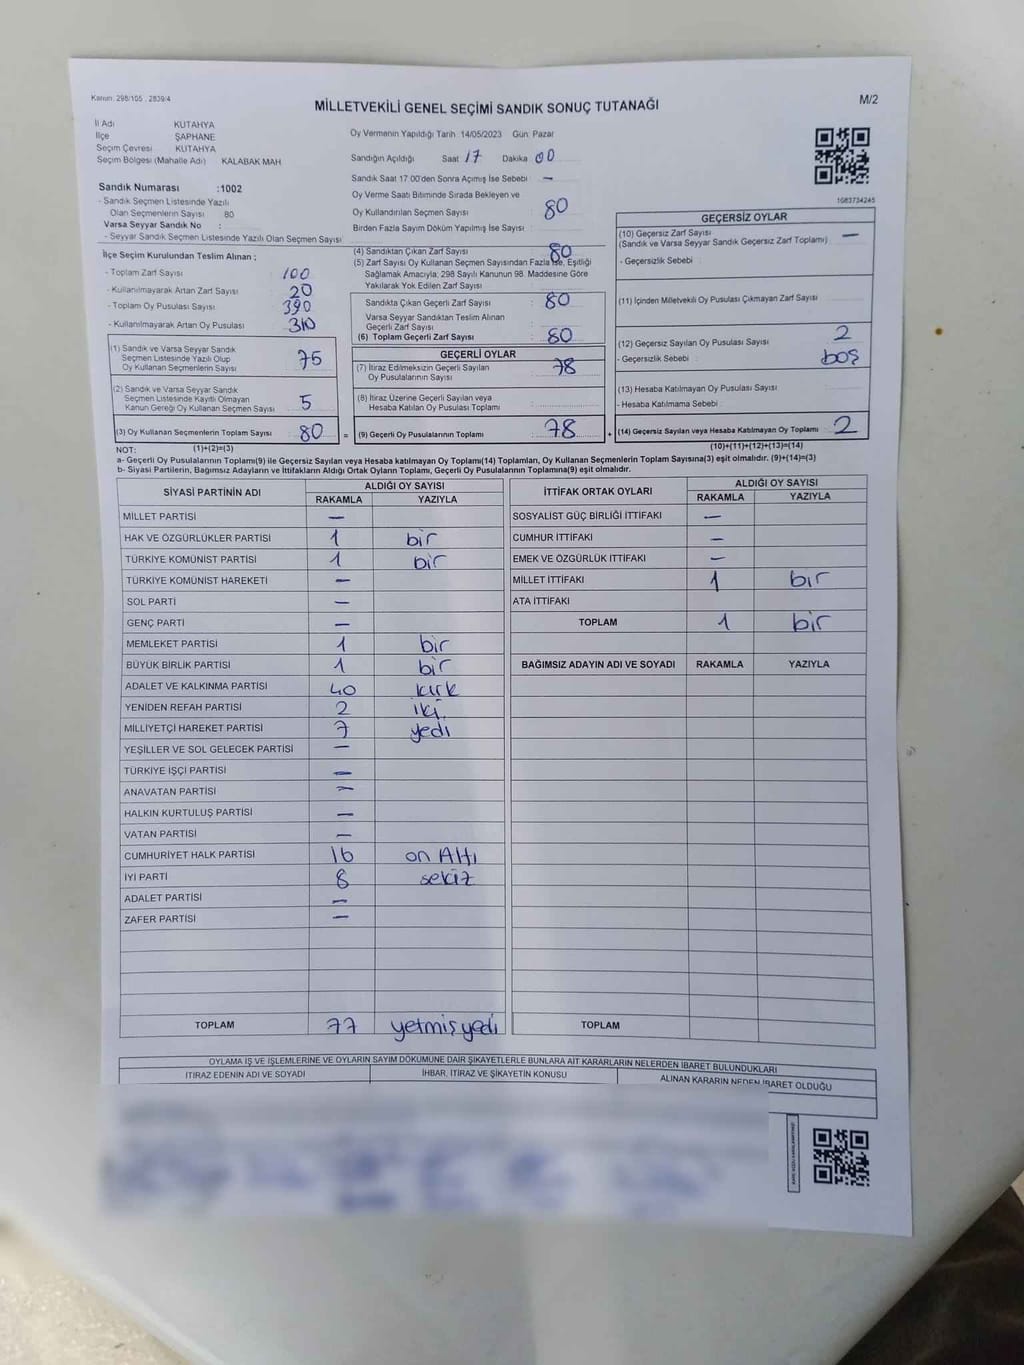 Kanun: 298/105 , 2839/4
MİLLETVEKİLİ GENEL SEÇİMİ SANDIK SONUÇ TUTANAĞI
M/2
İl Adı KÜTAHYA
İlçe ŞAPHANE
Seçim Çevresi KÜTAHYA
Seçim Bölgesi (Mahalle Adı) KALABAK MAH
Sandık Numarası :1002
- Sandık Seçmen Listesinde Yazılı
Olan Seçmenlerin Sayısı 80
Varsa Seyyar Sandık No :
- Seyyar Sandık Seçmen Listesinde Yazılı Olan Seçmen Sayısı
Oy Vermenin Yapıldığı Tarih: 14/05/2023 Gün: Pazar
Sandığın Açıldığı Saat 17 Dakika 00
Sandık Saat 17:00'den Sonra Açılmış İse Sebebi : —
Oy Verme Saati Bitiminde Sırada Bekleyen ve
Oy Kullandırılan Seçmen Sayısı : 80
Birden Fazla Sayım Döküm Yapılmış İse Sayısı :
1083734245
İlçe Seçim Kurulundan Teslim Alınan ;
- Toplam Zarf Sayısı : 100
- Kullanılmayarak Artan Zarf Sayısı : 20
- Toplam Oy Pusulası Sayısı : 390
- Kullanılmayarak Artan Oy Pusulası : 310
(1) Sandık ve Varsa Seyyar Sandık
Seçmen Listesinde Yazılı Olup
Oy Kullanan Seçmenlerin Sayısı : 75
(2) Sandık ve Varsa Seyyar Sandık
Seçmen Listesinde Kayıtlı Olmayan
Kanun Gereği Oy Kullanan Seçmen Sayısı : 5
(3) Oy Kullanan Seçmenlerin Toplam Sayısı : 80
(1)+(2)=(3)
(4) Sandıktan Çıkan Zarf Sayısı : 80
(5) Zarf Sayısı Oy Kullanan Seçmen Sayısından Fazla ise, Eşitliği
Sağlamak Amacıyla; 298 Sayılı Kanunun 98. Maddesine Göre
Yakılarak Yok Edilen Zarf Sayısı :
Sandıkta Çıkan Geçerli Zarf Sayısı : 80
Varsa Seyyar Sandıktan Teslim Alınan
Geçerli Zarf Sayısı :
(6) Toplam Geçerli Zarf Sayısı : 80
GEÇERLİ OYLAR
(7) İtiraz Edilmeksizin Geçerli Sayılan
Oy Pusulalarının Sayısı : 78
(8) İtiraz Üzerine Geçerli Sayılan veya
Hesaba Katılan Oy Pusulası Toplamı :
= (9) Geçerli Oy Pusulalarının Toplamı : 78
GEÇERSİZ OYLAR
(10) Geçersiz Zarf Sayısı
(Sandık ve Varsa Seyyar Sandık Geçersiz Zarf Toplamı) : —
- Geçersizlik Sebebi :
(11) İçinden Milletvekili Oy Pusulası Çıkmayan Zarf Sayısı :
(12) Geçersiz Sayılan Oy Pusulası Sayısı : 2
- Geçersizlik Sebebi : boş
(13) Hesaba Katılmayan Oy Pusulası Sayısı :
- Hesaba Katılmama Sebebi :
+ (14) Geçersiz Sayılan veya Hesaba Katılmayan Oy Toplamı : 2
(10)+(11)+(12)+(13)=(14)
NOT:
a- Geçerli Oy Pusulalarının Toplamı(9) ile Geçersiz Sayılan veya Hesaba katılmayan Oy Toplamı(14) Toplamları, Oy Kullanan Seçmenlerin Toplam Sayısına(3) eşit olmalıdır. (9)+(14)=(3)
b- Siyasi Partilerin, Bağımsız Adayların ve İttifakların Aldığı Ortak Oyların Toplamı, Geçerli Oy Pusulalarının Toplamına(9) eşit olmalıdır.
SİYASİ PARTİNİN ADI ALDIĞI OY SAYISI
RAKAMLA YAZIYLA
MİLLET PARTİSİ —
HAK VE ÖZGÜRLÜKLER PARTİSİ 1 bir
TÜRKİYE KOMÜNİST PARTİSİ 1 bir
TÜRKİYE KOMÜNİST HAREKETİ —
SOL PARTİ —
GENÇ PARTİ —
MEMLEKET PARTİSİ 1 bir
BÜYÜK BİRLİK PARTİSİ 1 bir
ADALET VE KALKINMA PARTİSİ 40 kırk
YENİDEN REFAH PARTİSİ 2 iki
MİLLİYETÇİ HAREKET PARTİSİ 7 yedi
YEŞİLLER VE SOL GELECEK PARTİSİ —
TÜRKİYE İŞÇİ PARTİSİ —
ANAVATAN PARTİSİ —
HALKIN KURTULUŞ PARTİSİ —
VATAN PARTİSİ —
CUMHURİYET HALK PARTİSİ 16 on Altı
İYİ PARTİ 8 sekiz
ADALET PARTİSİ —
ZAFER PARTİSİ —
TOPLAM 77 yetmiş yedi
İTTİFAK ORTAK OYLARI ALDIĞI OY SAYISI
RAKAMLA YAZIYLA
SOSYALİST GÜÇ BİRLİĞİ İTTİFAKI —
CUMHUR İTTİFAKI —
EMEK VE ÖZGÜRLÜK İTTİFAKI —
MİLLET İTTİFAKI 1 bir
ATA İTTİFAKI
TOPLAM 1 bir
BAĞIMSIZ ADAYIN ADI VE SOYADI RAKAMLA YAZIYLA
TOPLAM
OYLAMA İŞ VE İŞLEMLERİNE VE OYLARIN SAYIM DÖKÜMÜNE DAİR ŞİKAYETLERLE BUNLARA AİT KARARLARIN NELERDEN İBARET BULUNDUKLARI
İTİRAZ EDENİN ADI VE SOYADI İHBAR, İTİRAZ VE ŞİKAYETİN KONUSU ALINAN KARARIN NEDEN İBARET OLDUĞU